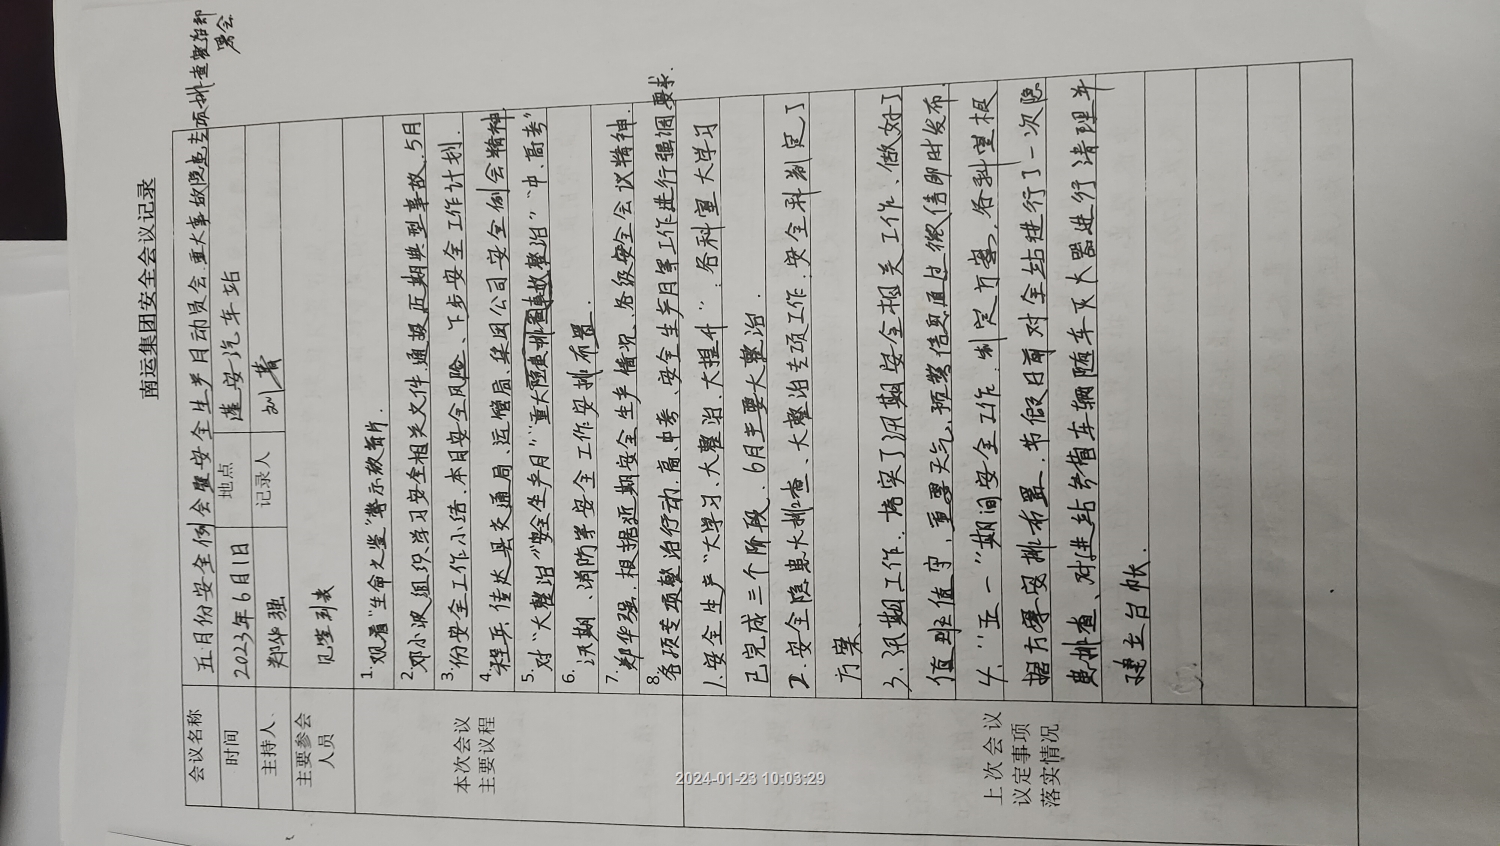 南运集团安全会议记录
会议名称 五月份安全例会暨安全生产月动员会、重大事故隐患专项排查整治部署会
时间 2023年6月1日 地点 蓬安汽车站
主持人 郑华强 记录人 刘菁
主要参会人员 见签到表
本次会议主要议程
1. 观看“生命之鉴”警示教育片.
2. 邓小波组织学习安全相关文件,通报近期典型事故、5月
3. 份安全工作小结、本月安全风险、下步安全工作计划.
4. 程兵:传达县交通局、运管局、集团公司安全例会精神
5. 对“大整治”“安全生产月”“重大隐患排查事故整治”“中、高考”
6. 汛期、消防等安全工作安排布置.
7. 郑华强:根据近期安全生产情况、各级安全会议精神.
8. 各项专项整治行动、高、中考、安全生产月等工作进行强调要求.
上次会议议定事项落实情况
1.安全生产“大学习、大整治、大提升”:各科室大学习
已完成三个阶段、6月主要大整治.
2.安全隐患大排查、大整治专项工作:安全科制定了
方案、
3、汛期工作:落实了汛期安全相关工作、做好了
值班值守、重要天气、预警信息通过微信即时发布.
4、“五一”期间安全工作:制定方案、各科室根
据方案安排布置、节假日前对全站进行了一次隐
患排查、对进站参营车辆随车灭火器进行清理并
建立台帐.
2024-01-23 10:03:29